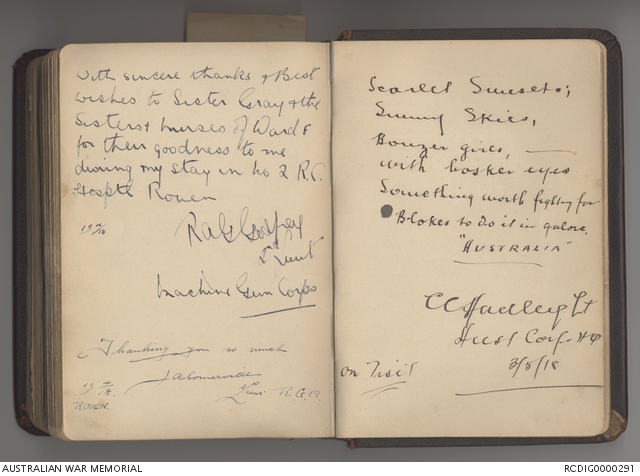 With sincere thanks & Best
wishes to Sister Gray & the
Sisters & nurses of Ward
for their goodness to me
during my stay in No 2 R.C.
Hospital Rouen
R A G Godfray
Lieut
Machine Gun Corps
Thanking you so much
Lieut R.G.A.
ROUEN.
Scarlet Sunsets;
Sunny Skies,
Bonzer girls, —
with bosker eyes
Something worth fighting for
Blokes to do it in galore.
"AUSTRALIA"
C C Hadley Lt
Aust Corps. HQ
3/5/18
on Visit
AUSTRALIAN WAR MEMORIAL
RCDIG0000291